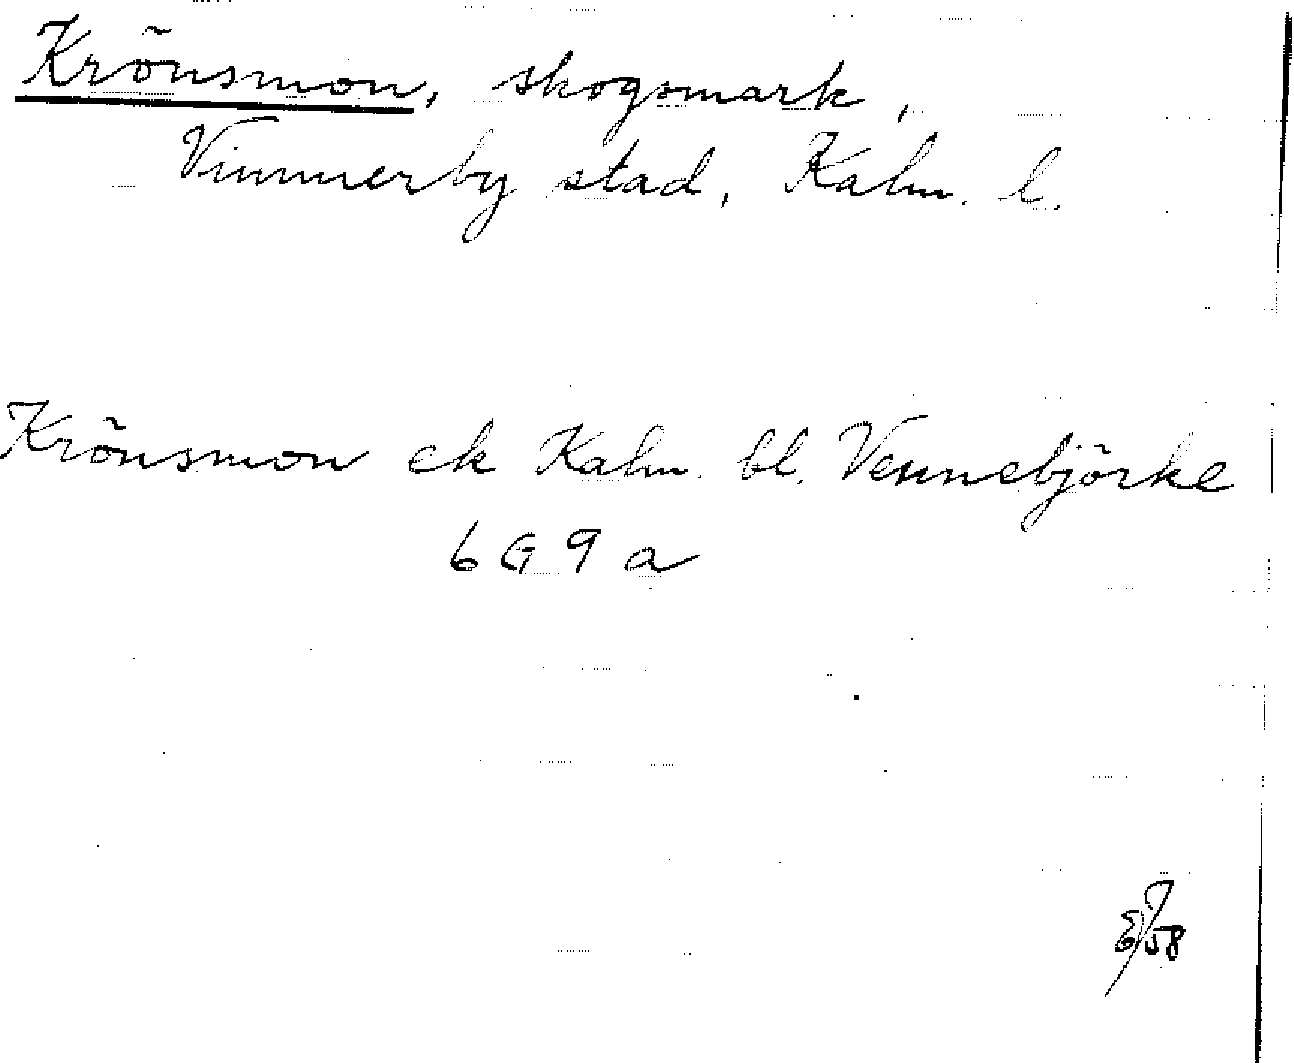 Krönsmon, skogsmark,
Vimmerby stad, Kalm. l.
Krönsmon ek Kalm. bl. Vennebjörke
6G 9 a